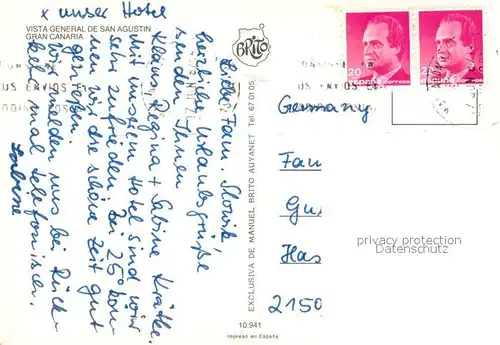 x unser Hotel
VISTA GENERAL DE SAN AGUSTIN
GRAN CANARIA
BRITO
Liebe Fam. Slovik
herzliche Urlaubsgrüße
senden Ihnen
Klaus, Regina + Sabine
Mit unserem Hotel sind wir
sehr zufrieden. Bei 25° kön-
nen wir die schöne Zeit gut
genießen.
Wir melden uns bei Rück-
kehr mal telefonisch.
Sabine
EXCLUSIVA DE MANUEL BRITO AUYANET - Tel. 67 01 05
10.941
Impreso en España
20
España correos
España correos
Germany
Fam
Gu
Has
2150
privacy protection
Datenschutz